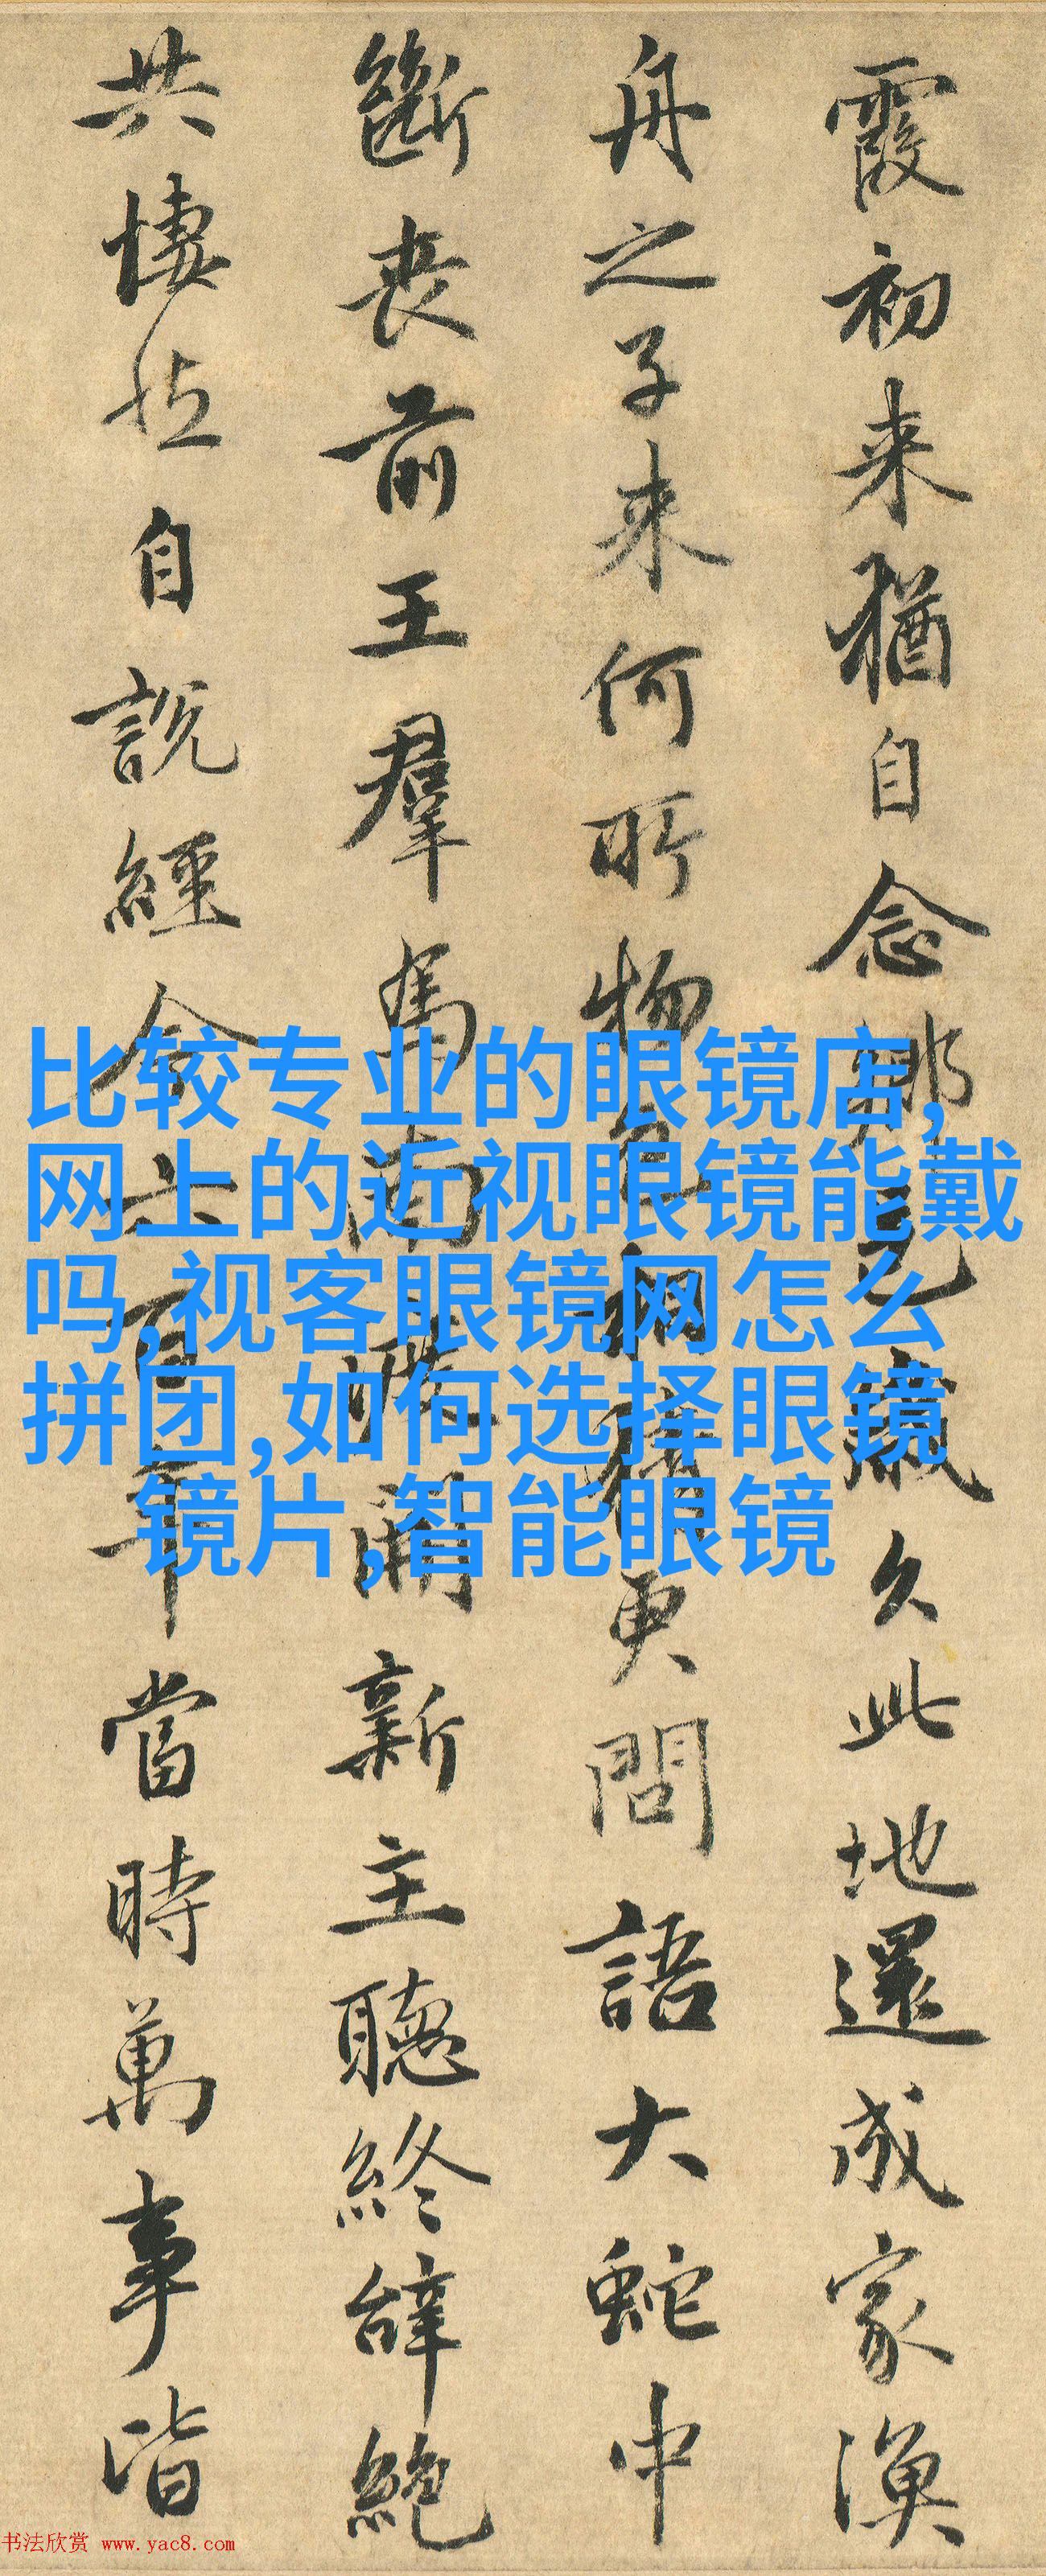 霞初来猶自念鄉邑歲久此地還成家漁
舟之子来何所物色相猜更問語大蛇中
斷喪前王羣馬南渡開新主聽終辭絶
共悽然自說經今六百年當時萬事皆
比较专业的眼镜店,
网上的近视眼镜能戴
吗,视客眼镜网怎么
拼团,如何选择眼镜
镜片,智能眼镜
书法欣赏 www.yac8.com